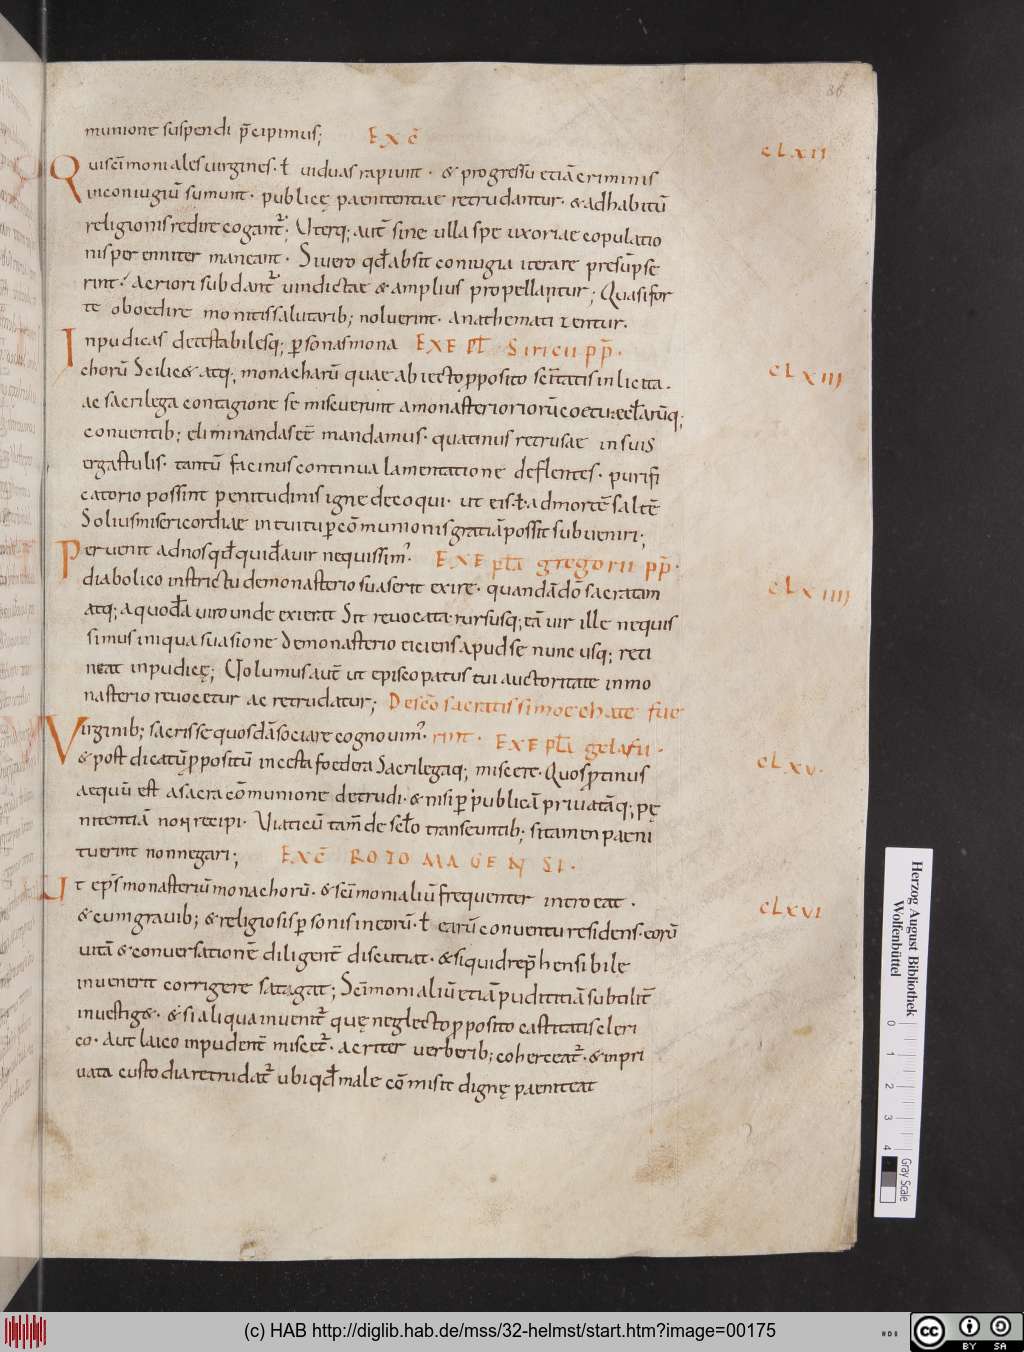 86
munione suspendi p̄cipimus; EXC̄ CLXII
Qui sc̄imoniales uirgines · ł uiduas rapiunt · & progressū etiā criminis
in coniugiū sumunt · publicę paenitentiae retrudantur · & ad habitū
religionis redire cogant̄; Uterq; aut̄ sine ulla spe uxoriae copulatio
nis perenniter maneant · Si uero qd̄ absit coniugia iterare presūpse
rint · acriori subdant̄ uindictae & amplius propellantur; Quasi for
te oboedire monitis salutarib; noluerint · anathematizentur ·
Inpudicas detestabilesq; psonas mona EXE PŁ · Siricii pp̄ · CLXIII
chorū Scilic& atq; monacharū quae abiecto pposito sc̄itatis inlicita ·
ac sacrilega contagione se miscuerunt a monasterioriorū coetu eccl̄arūq;
conuentib; eliminandas eē mandamus · quatinus retrusae in suis
ergastulis · tantū facinus continua lamentatione deflentes · purifi
catorio possint penitudinis igne decoqui · ut eis · ł ad mortē saltē
Solius misericordiae intuitu p cōmunionis gratiā possit subueniri;
Peruenit ad nos qd̄ quidā uir nequissim' EXE pła gregorii pp̄ · CLXIIII
diabolico instrictu de monasterio suaserit exire · quandā dō sacratam
atq; a quodā uiro unde exierat Sit reuocata · rursusq; eā uir ille nequis
simus iniqua suasione de monasterio eiciens apud se nunc usq; reti
neat inpudicę; Uolumus aut̄ ut episcopatus tui auctoritate in mo
nasterio reuocetur ac retrudatur; De scō sacratissimo echate fue
Virginib; sacris se quosdā sociare cognouim' · rint · EXE pła gelasii · CLXV ·
& post dicatū ppositū incesta foedera Sacrilegaq; miscere · Quos ptinus
aequū est a sacra cōmunione detrudi · & nisi p publicā priuatāq; pę
nitentiā non recipi · Uiaticū tam̄ de sclō transeuntib; si tamen paeni
tuerint non negari; EXC̄ ROTOMAGENSI ·
Ut epīs monasteriū monachorū · & sc̄imonialiū frequenter introeat · CLXVI
& cum grauib; & religiosis psonis in eorū · ł earū conuentu residens · eorū
uitā & conuersationē diligent̄ discutiat · & si quid rep̄hensibile
inuenerit corrigere satagat; Sc̄imonialiū etiā pudititiā subtilit̄
inuestig& · & si aliqua inuenit̄ quę neglecto pposito castitatis cleri
co · aut laico inpudent̄ miscet̄ · acriter uerberib; coherceat̄ · & in pri
uata custodia retrudat̄ ubi qd̄ male cōmisit dignę paeniteat
Herzog August Bibliothek
Wolfenbüttel
0 1 2 3 4
Gray Scale
(c) HAB http://diglib.hab.de/mss/32-helmst/start.htm?image=00175
cc BY SA